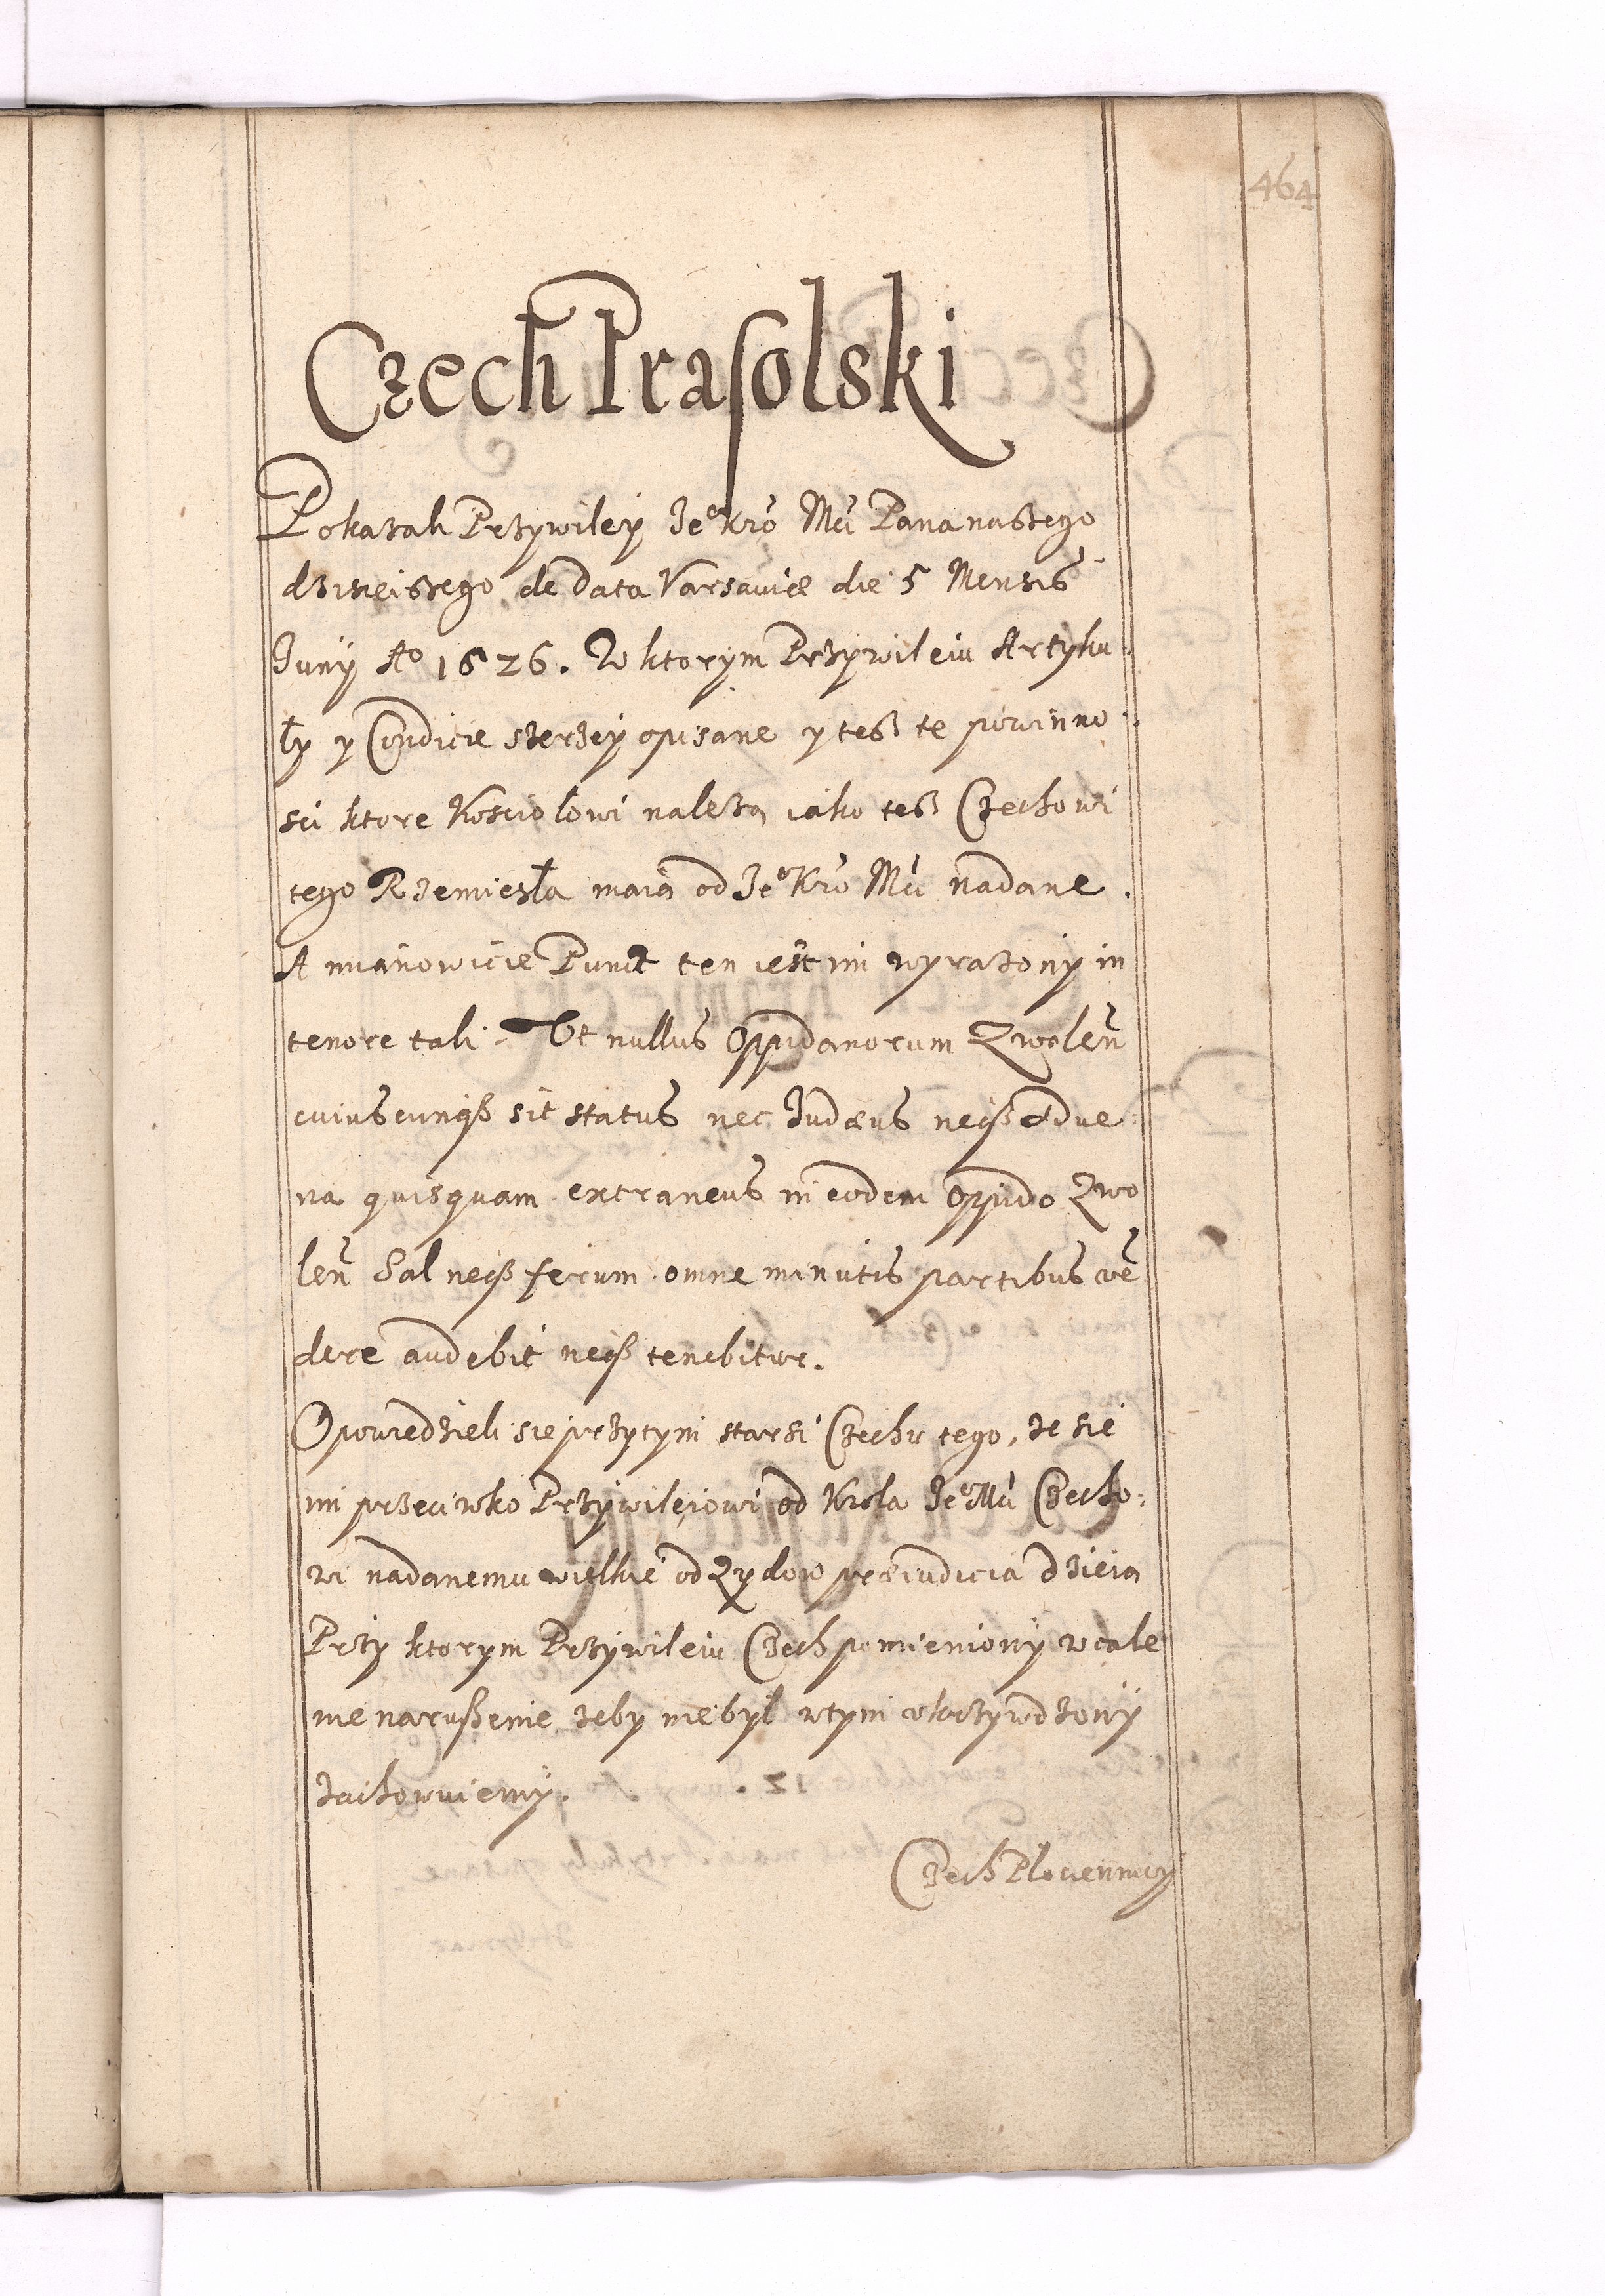 464
Czech Prasolski
Pokazali Przywiley Jeº Kro Mci Pana naszego
dzisieiszego de data Varsaviæ die 5 Mensis
Juny Aº 1626. W ktorym Przywileiu Artyku
ły y Condicie szerzey opisane y tesz te powinno
sci ktore Kosciolowi nalezą iako tesz Czechowi
tego Rzemiesła maią od Jeº Kro Mci nadane.
A mianowicie Punct ten iest im wyrazony in
tenore tali. Ut nullus Oppidanorum Zwoleñ
cuiuscunqß sit status nec Judæus neqß adve
na quisquam extraneus in eodem Oppido Zwo
leñ Sal neqß ferrum omne minutis partibus vẽ
dere audebit neqß tenebitur.
Opowiedzieli sie przytym starsi Czechu tego, ze sie
im przeciwko Przywileiowi od Krola Jeº Mci Czecho
wi nadanemu wielkie od Zydow præiudicia dzieią
Przy ktorym Przywileiu Czech pomieniony wcale
nie narußenie zeby nie był wtym ukrzywdzony
zachowuiemy.
Czech Płociennicy